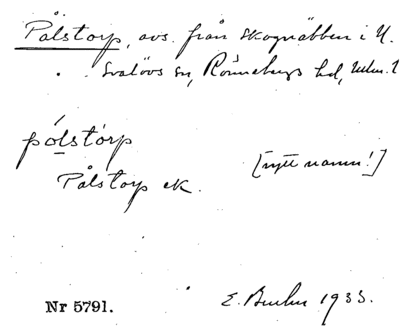 Pålstorp, avs. från Skognäbben i N.
Svalövs sn, Rönnebergs hd,
pólstórp
Pålstorp ek.
[nytt namn!]
Nr 5791.
E. 1933.